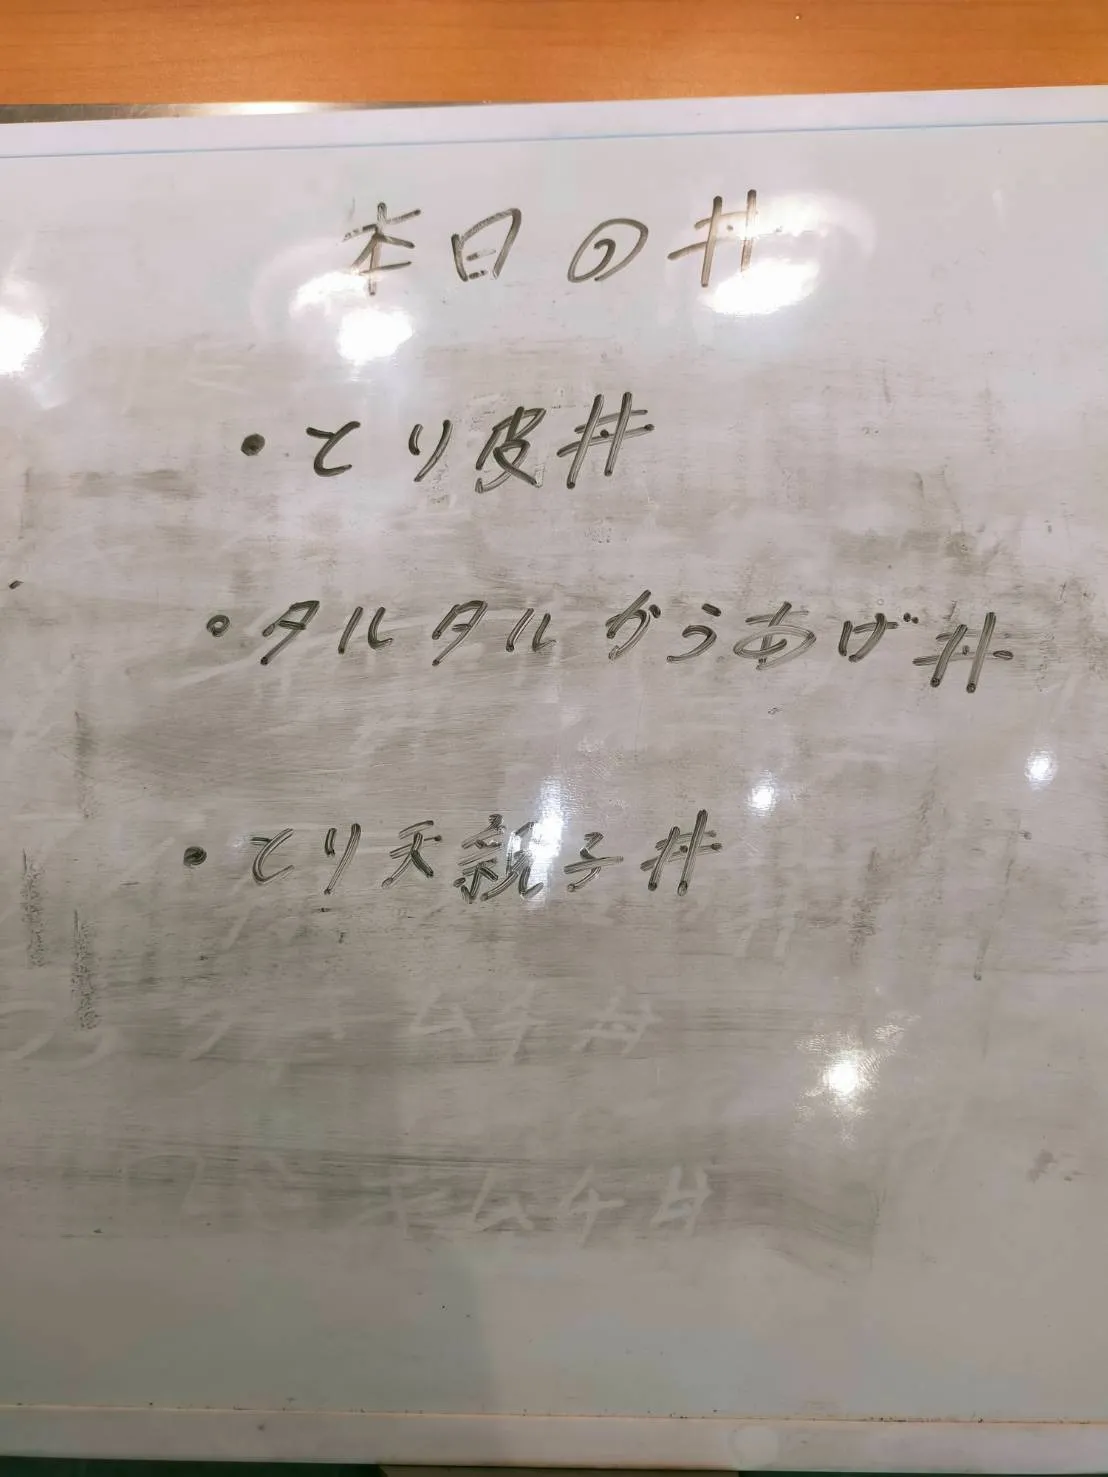 本日の丼
・とり皮丼
・タルタルからあげ丼
・とり天親子丼
キムチ丼